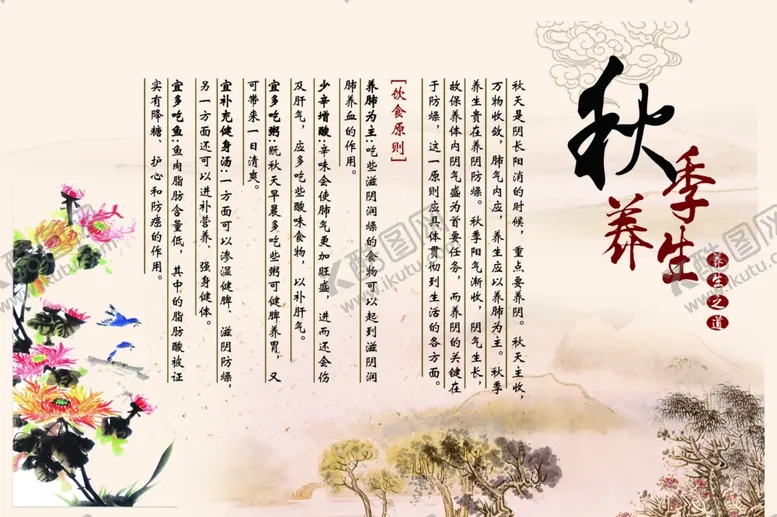 秋季养生
养生之道
秋天是阴长阳消的时候，重点要养阴。秋天主收，
万物收敛，肺气内应，养生应以养肺为主。秋季
养生贵在养阴防燥。秋季阳气渐收，阴气生长，
故保养体内阴气盛为首要任务，而养阴的关键在
于防燥，这一原则应具体贯彻到生活的各方面。
[饮食原则]
养肺为主:吃些滋阴润燥的食物可以起到滋阴润
肺养血的作用。
少辛增酸:辛味会使肺气更加旺盛，进而还会伤
及肝气，应多吃些酸味食物，以补肝气。
宜多吃粥:既秋天早晨多吃些粥可健脾养胃，又
可带来一日清爽。
宜补充健身汤:一方面可以渗湿健脾、滋阴防燥，
另一方面还可以进补营养、强身健体。
宜多吃鱼:鱼肉脂肪含量低，其中的脂肪酸被证
实有降糖、护心和防癌的作用。
酷图网
www.ikutu.com
酷图网
www.ikutu.com
酷图网
www.ikutu.com